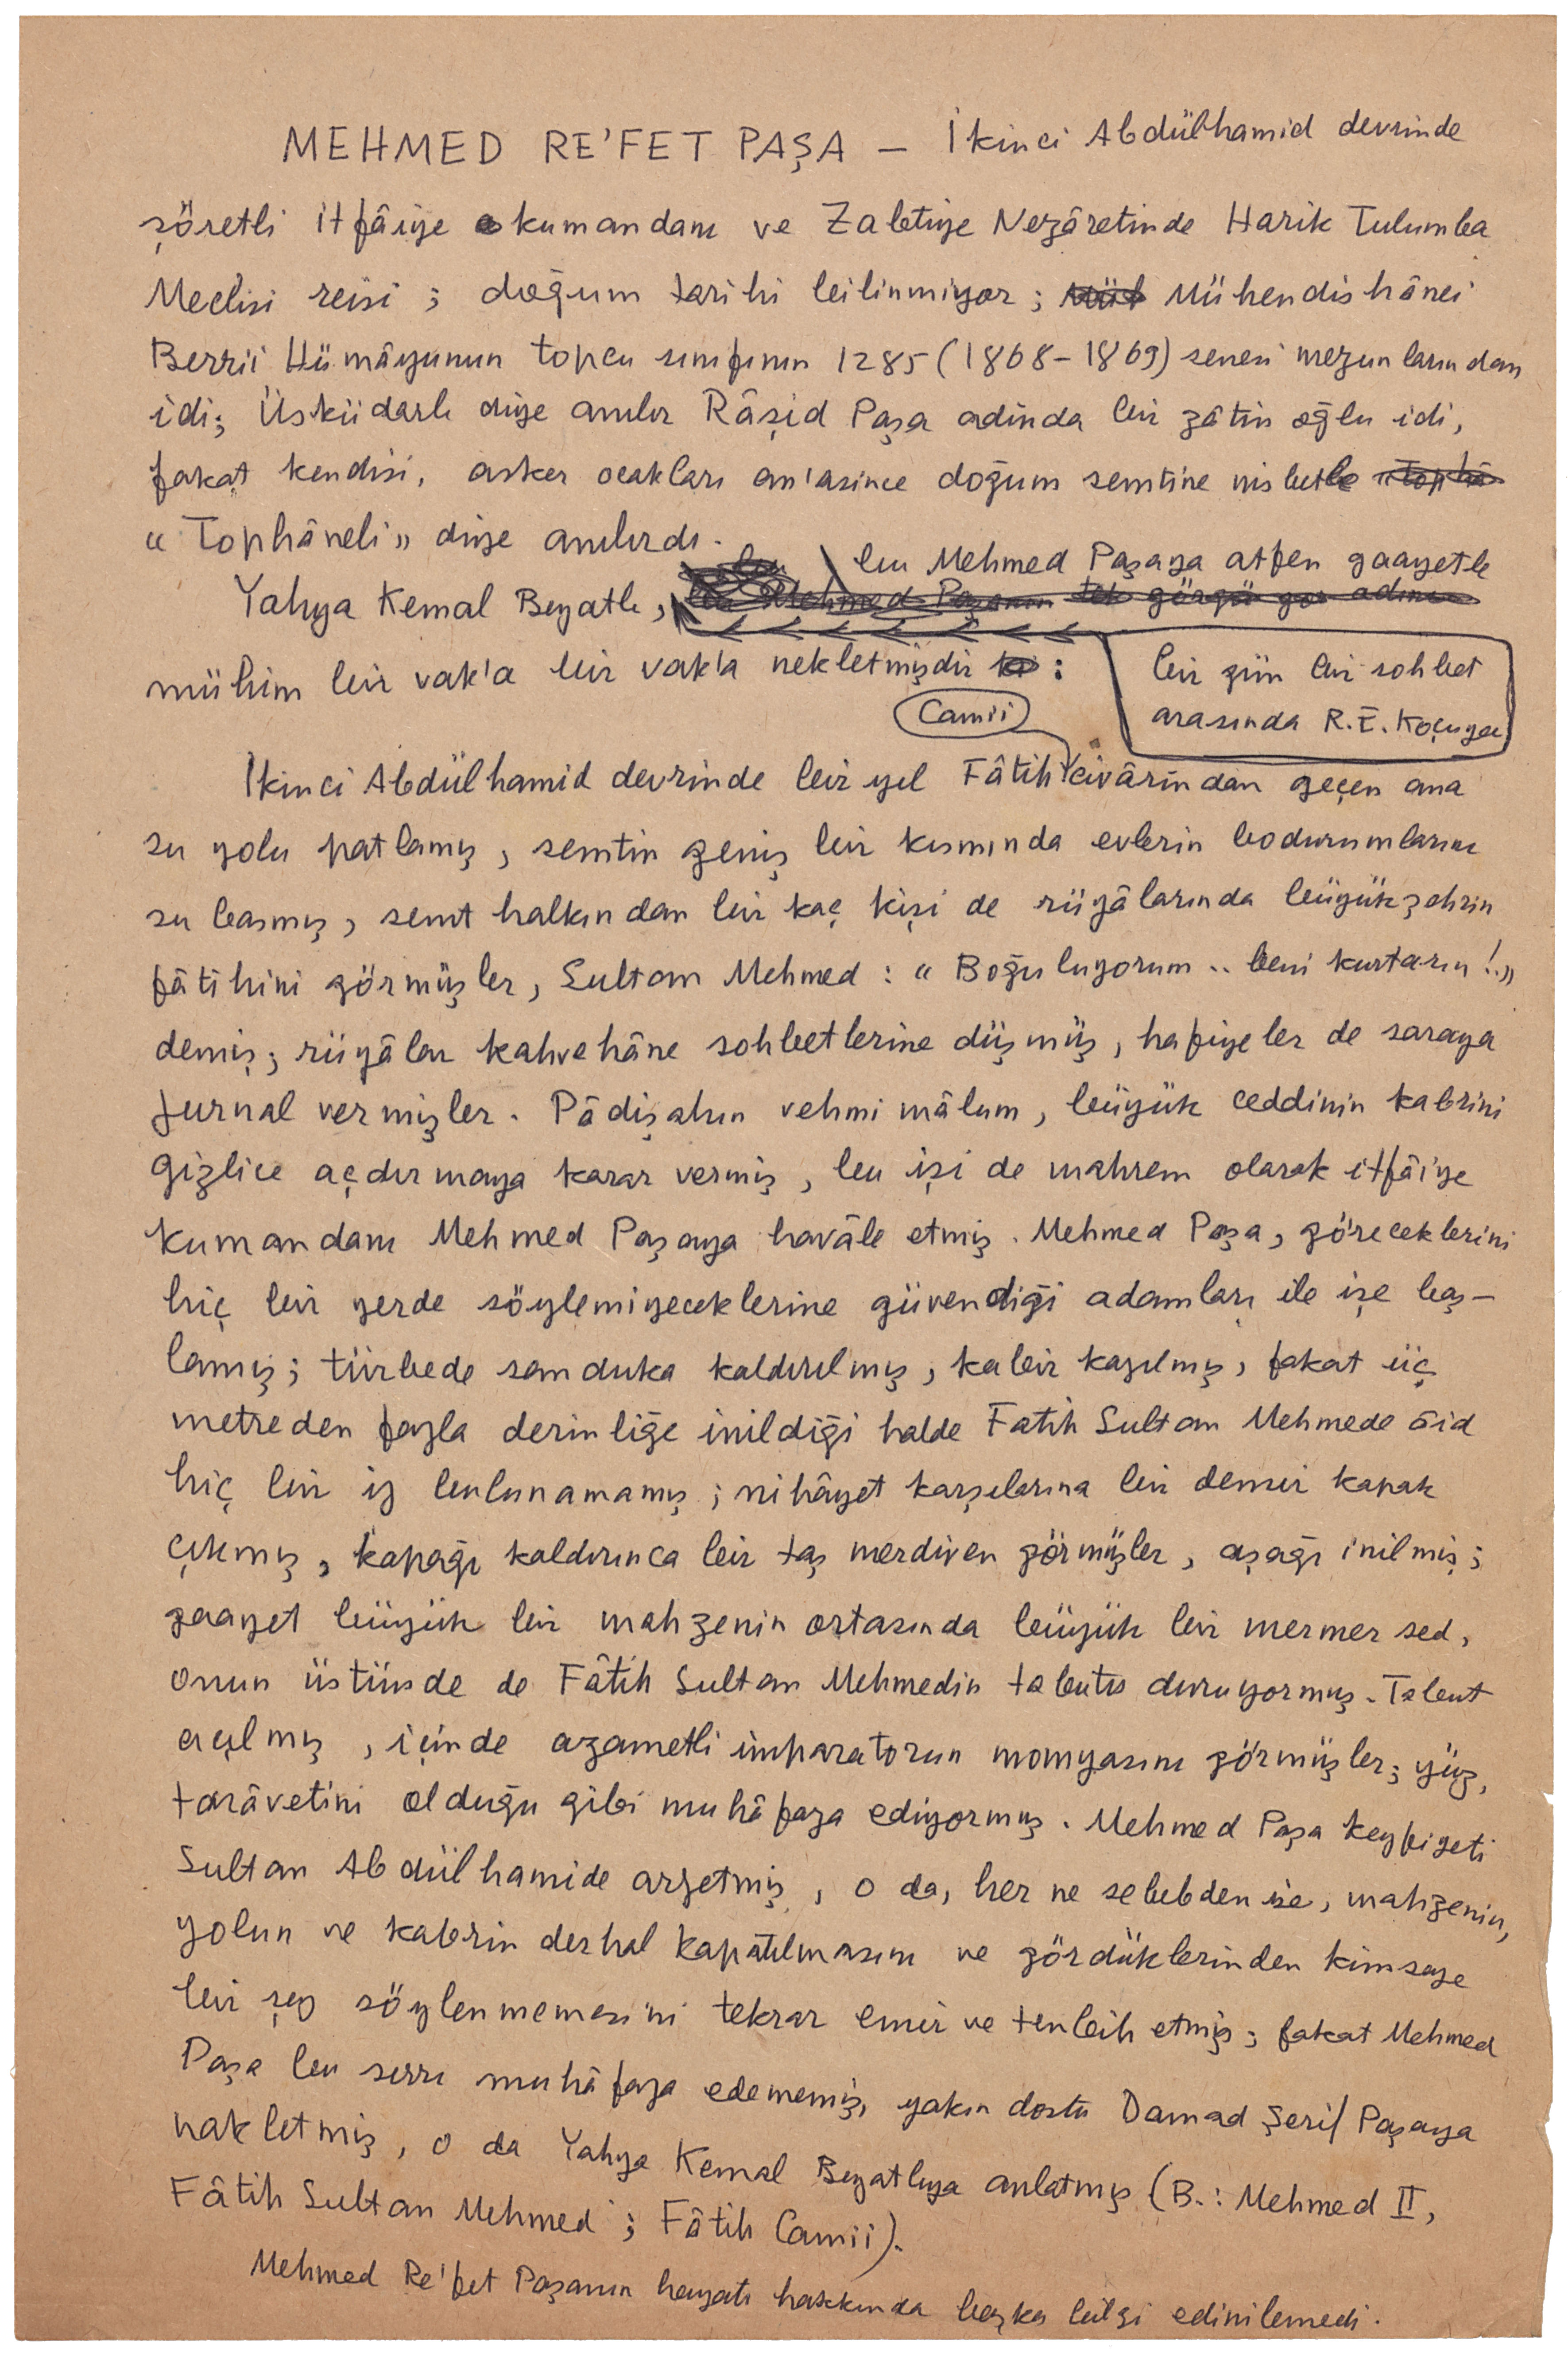 MEHMED RE'FET PAŞA — İkinci Abdülhamid devrinde
şöretli itfâiye kumandanı ve Zabtiye Nezâretinde Harik Tulumba
Meclisi reisi ; doğum tarihi bilinmiyor ; Mühendishânei
Berrii Hümâyunun topcu sınıfının 1285 (1868-1869) senesi mezunlarından
idi; Üsküdarlı diye anılır Râşid Paşa adında bir zâtin oğlu idi,
fakat kendisi, asker ocakları an'asince doğum semtine nisbetle
« Tophâneli » diye anılırdı.
bu Mehmed Paşaya atfen gaayetle
Yahya Kemal Beyatlı,
mühim bir vak'a bir vak'a nekletmişdir :
bir gün bir sohbet
arasında R.E. Koçuya
Camii
İkinci Abdülhamid devrinde bir yıl Fâtih civârından geçen ana
su yolu patlamış, semtin geniş bir kısmında evlerin bodurumlarını
su basmış, semt halkından bir kaç kişi de rüyâlarında büyükşehrin
fâtihini görmüşler, Sultan Mehmed : « Boğuluyorum .. beni kurtarın!.. »
demiş; rüyâlar kahvehâne sohbetlerine düşmüş, hafiyeler de saraya
jurnal vermişler. Pâdişahın vehmi mâlum, büyük ceddinin kabrini
gizlice açdırmaya karar vermiş, bu işi de mahrem olarak itfâiye
kumandanı Mehmed Paşaya havâle etmiş. Mehmed Paşa, göreceklerini
hiç bir yerde söylemiyeceklerine güvendiği adamları ile işe baş-
lamış; türbede sanduka kaldırılmış, kabir kazılmış, fakat üç
metreden fazla derinliğe inildiği halde Fatih Sultan Mehmede âid
hiç bir iz bulunamamış; nihâyet karşılarına bir demir kapak
çıkmış, kapağı kaldırınca bir taş merdiven görmüşler, aşağı inilmiş;
gaayet büyük bir mahzenin ortasında büyük bir mermer sed,
onun üstünde de Fâtih Sultan Mehmedin tabutu duruyormuş. Tabut
açılmış, içinde azametli imparatorun momyasını görmüşler; yüz,
tarâvetini olduğu gibi muhâfaza ediyormuş. Mehmed Paşa keyfiyeti
Sultan Abdülhamide arzetmiş, o da, her ne sebebden ise, mahzenin,
yolun ve kabrin derhal kapatılmasını ve gördüklerinden kimseye
bir şey söylenmemesini tekrar emir ve tenbih etmiş; fakat Mehmed
Paşa bu sırrı muhâfaza edememiş, yakın dostu Damad Şerif Paşaya
nakletmiş, o da Yahya Kemal Beyatlıya anlatmış (B.: Mehmed II,
Fâtih Sultan Mehmed ; Fâtih Camii).
Mehmed Re'fet Paşanın hayatı hakkında başka bilgi edinilemedi.